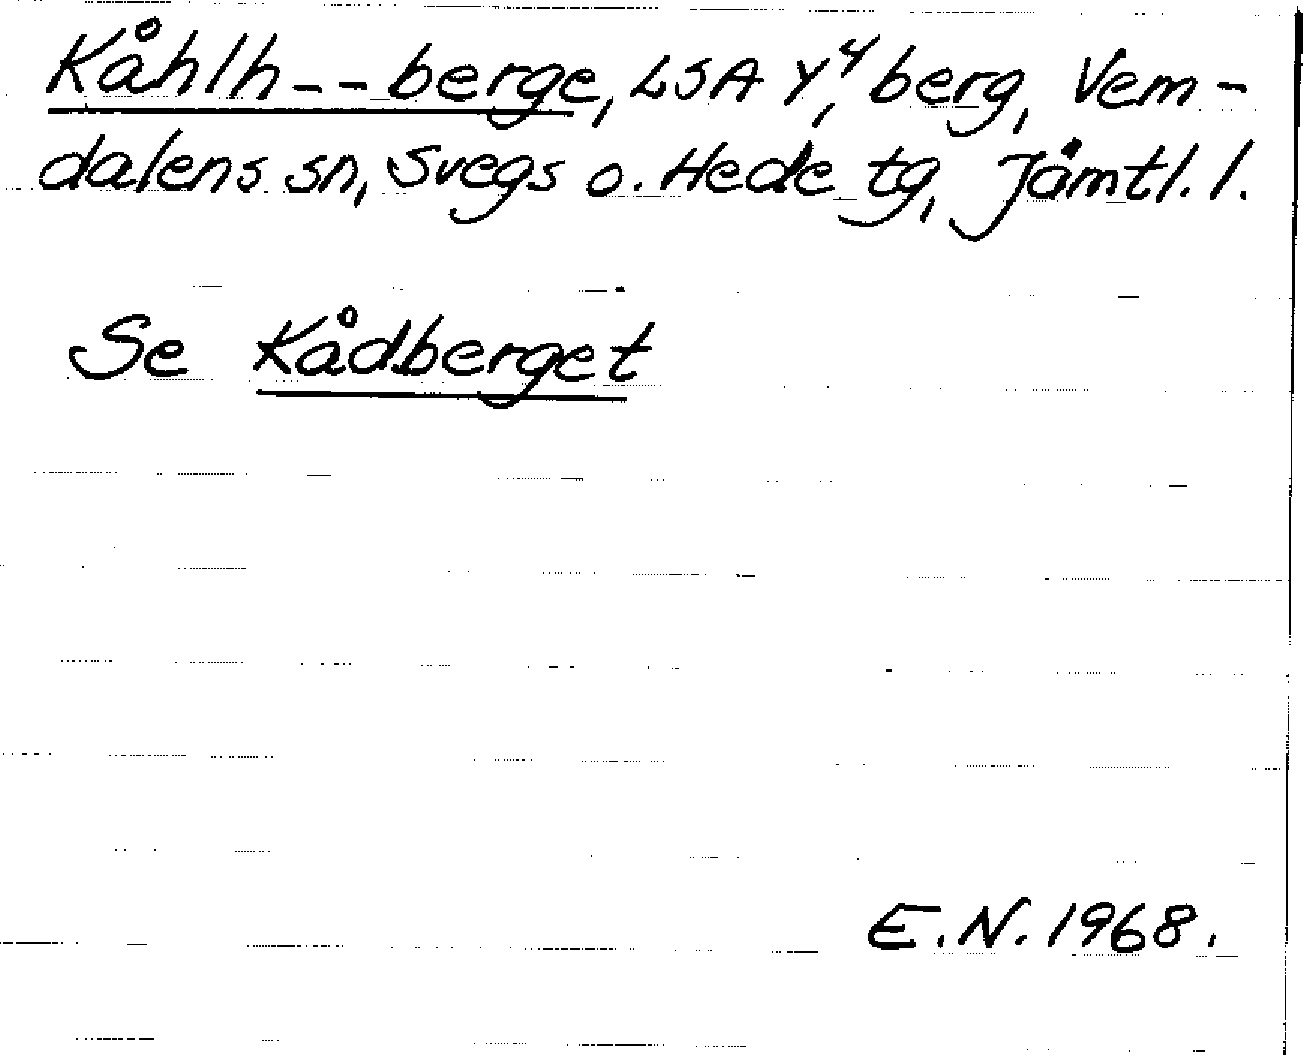 Kåhlh--berge, LSA Y⁴, berg, Vem-
dalens sn, Svegs o. Hede tg, Jämtl. l.
Se Kådberget
E.N. 1968.